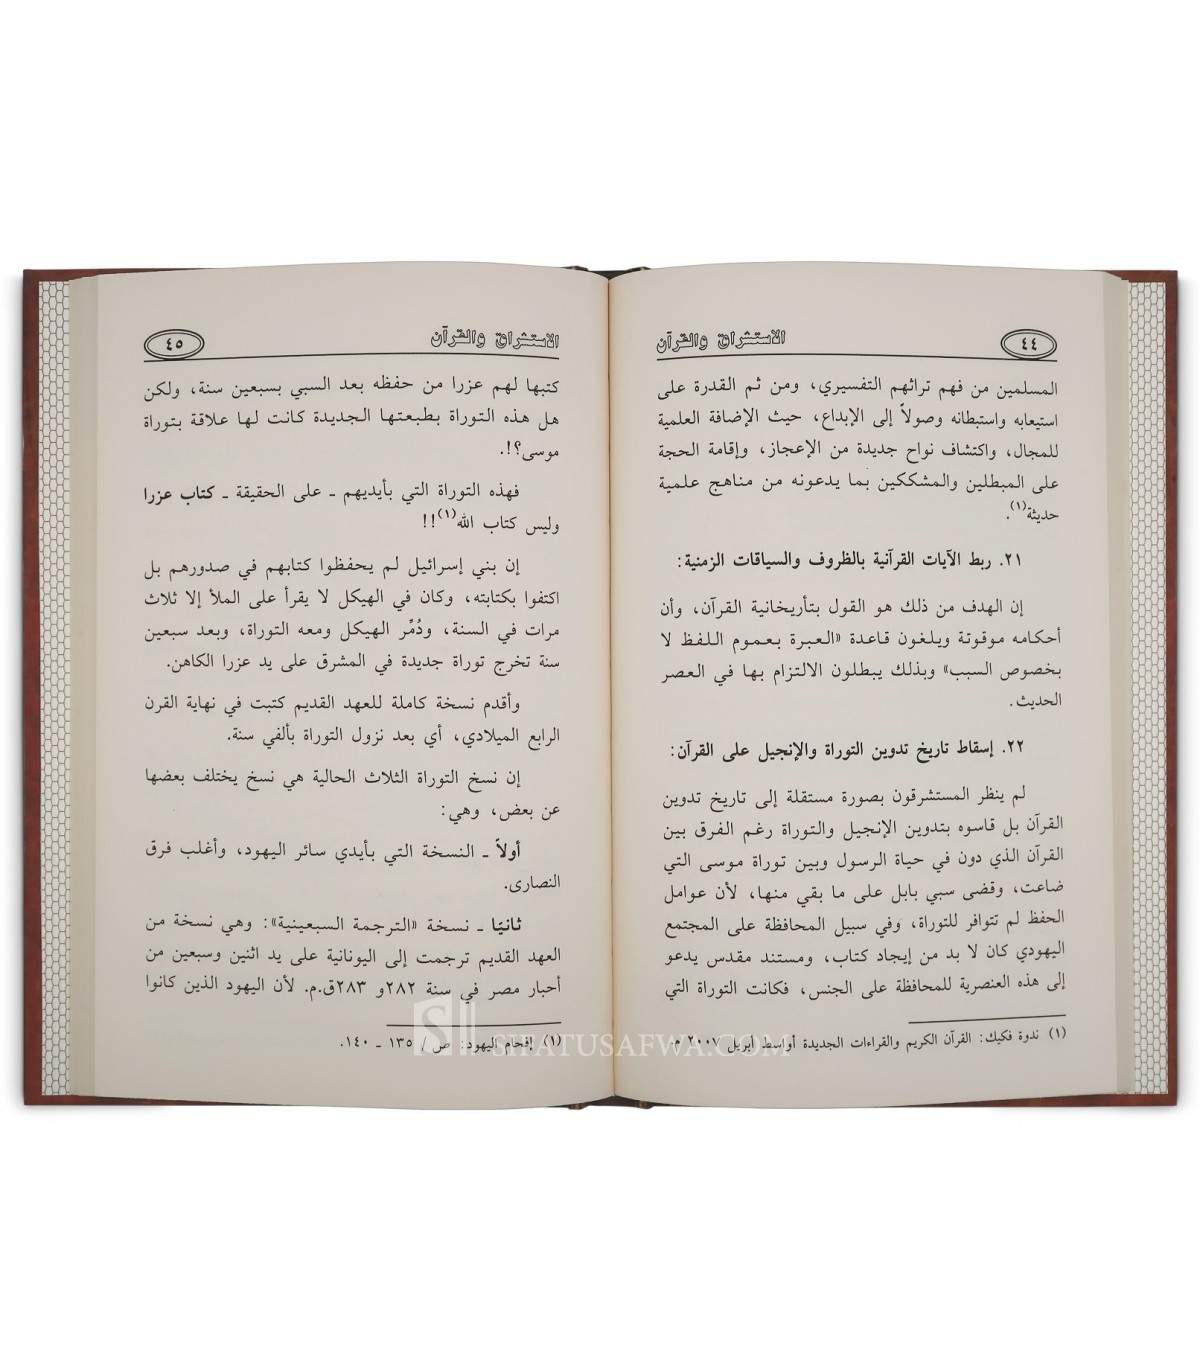 الاستشراق والقرآن
٤٤
المسلمين من فهم تراثهم التفسيري، ومن ثم القدرة على
استيعابه واستبطانه وصولاً إلى الإبداع، حيث الإضافة العلمية
للمجال، واكتشاف نواح جديدة من الإعجاز، وإقامة الحجة
على المبطلين والمشككين بما يدعونه من مناهج علمية
حديثة(١).
٢١. ربط الآيات القرآنية بالظروف والسياقات الزمنية:
إن الهدف من ذلك هو القول بتأريخانية القرآن، وأن
أحكامه موقوتة ويلغون قاعدة «العبرة بعموم اللفظ لا
بخصوص السبب» وبذلك يبطلون الالتزام بها في العصر
الحديث.
٢٢. إسقاط تاريخ تدوين التوراة والإنجيل على القرآن:
لم ينظر المستشرقون بصورة مستقلة إلى تاريخ تدوين
القرآن بل قاسوه بتدوين الإنجيل والتوراة رغم الفرق بين
القرآن الذي دون في حياة الرسول وبين توراة موسى التي
ضاعت، وقضى سبي بابل على ما بقي منها، لأن عوامل
الحفظ لم تتوافر للتوراة، وفي سبيل المحافظة على المجتمع
اليهودي كان لا بد من إيجاد كتاب، ومستند مقدس يدعو
إلى هذه العنصرية للمحافظة على الجنس، فكانت التوراة التي
(١) ندوة فكيك: القرآن الكريم والقراءات الجديدة أواسط أبريل ٢٠٠٧ م.
الاستشراق والقرآن
٤٥
كتبها لهم عزرا من حفظه بعد السبي بسبعين سنة، ولكن
هل هذه التوراة بطبعتها الجديدة كانت لها علاقة بتوراة
موسى؟!.
فهذه التوراة التي بأيديهم ـ على الحقيقة ـ كتاب عزرا
وليس كتاب الله(١)!!
إن بني إسرائيل لم يحفظوا كتابهم في صدورهم بل
اكتفوا بكتابته، وكان في الهيكل لا يقرأ على الملأ إلا ثلاث
مرات في السنة، ودُمِّر الهيكل ومعه التوراة، وبعد سبعين
سنة تخرج توراة جديدة في المشرق على يد عزرا الكاهن.
وأقدم نسخة كاملة للعهد القديم كتبت في نهاية القرن
الرابع الميلادي، أي بعد نزول التوراة بألفي سنة.
إن نسخ التوراة الثلاث الحالية هي نسخ يختلف بعضها
عن بعض، وهي:
أولاً ـ النسخة التي بأيدي سائر اليهود، وأغلب فرق
النصارى.
ثانيًا ـ نسخة «الترجمة السبعينية»: وهي نسخة من
العهد القديم ترجمت إلى اليونانية على يد اثنين وسبعين من
أحبار مصر في سنة ٢٨٢و ٢٨٣ق.م. لأن اليهود الذين كانوا
(١) إفحام اليهود: ص / ١٣٥ ـ ١٤٠.
SHATUSAFWA.COM